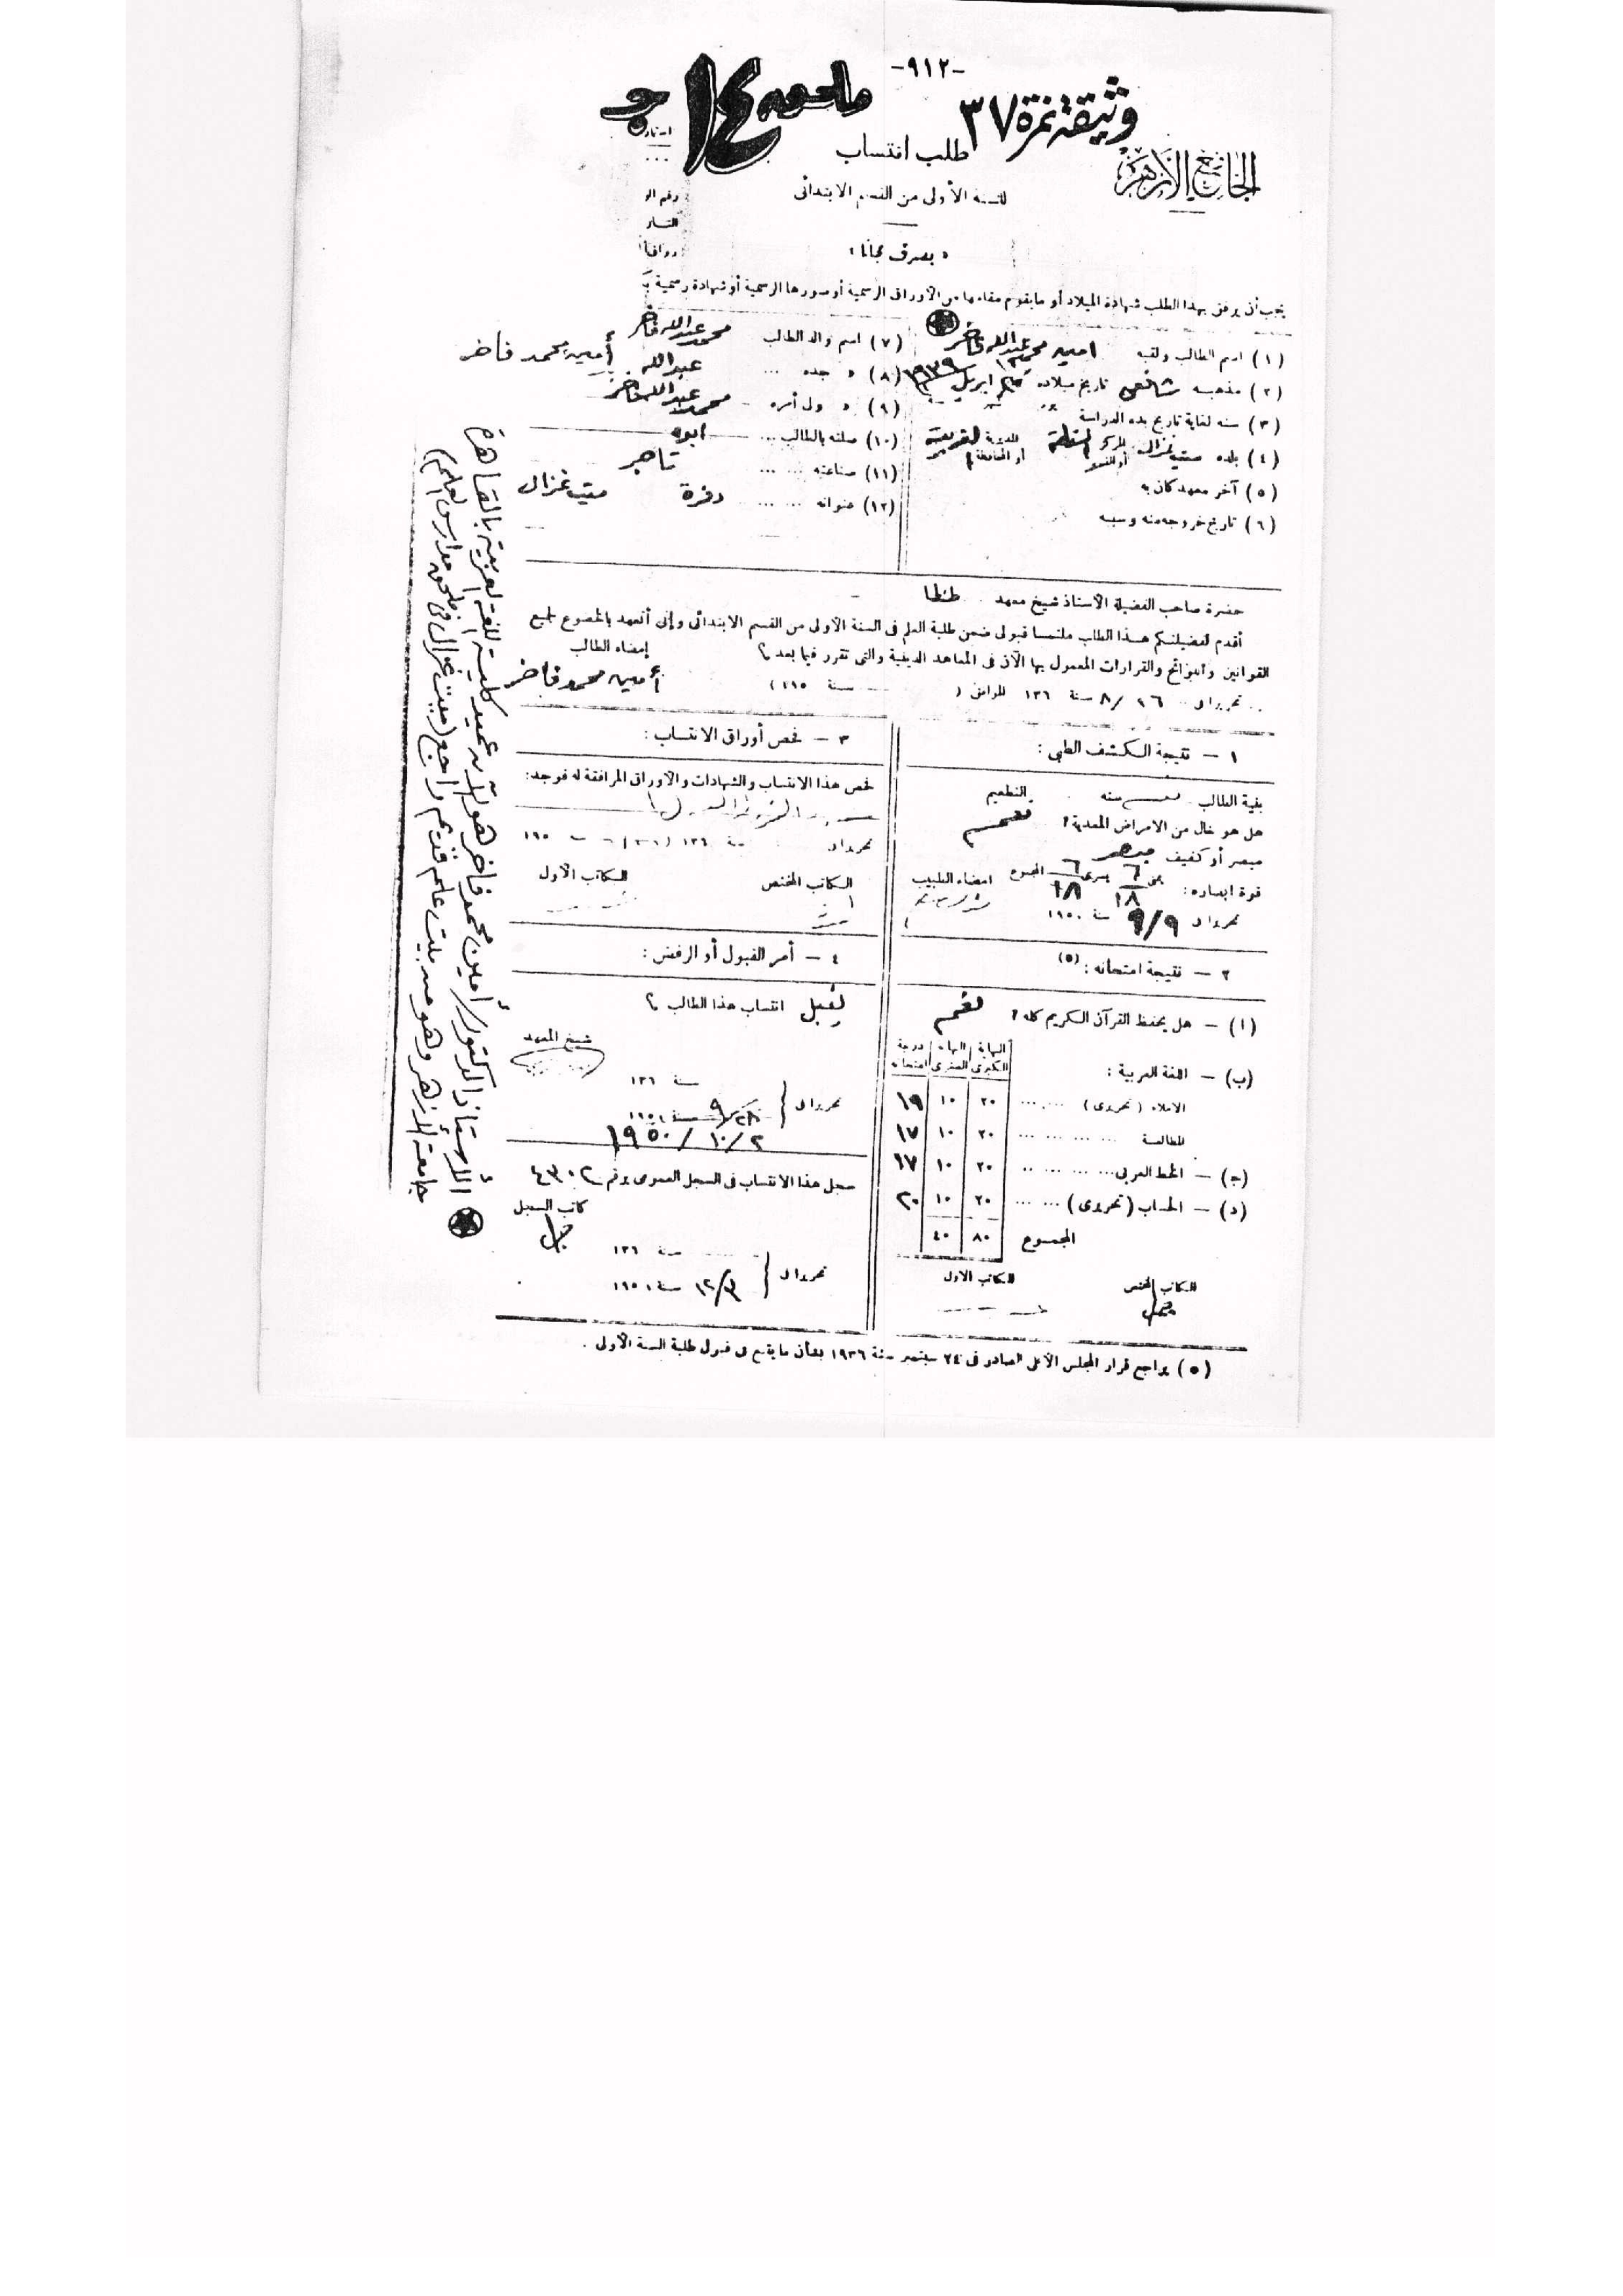 -٩١٢-
وثيقة نمرة ٣٧
ملحق ١٤ جـ
الجامع الأزهر
طلب انتساب
للسنة الأولى من القسم الابتدائى
« يصرف مجانا »
يجب أن يرفق بهذا الطلب شهادة الميلاد أو ما يقوم مقامها من الأوراق الرسمية أو صورها الرسمية أو شهادة رسمية
(١) اسم الطالب ولقبه امين محمد عبدالله فاخر
(٢) مذهبه شافعى تاريخ ميلاده ابريل ١٩٣٩
(٣) سنه لغاية تاريخ بدء الدراسة
(٤) بلده ميت غزال المركز أو القسم السنطة المديرية أو المحافظة الغربية
(٥) آخر معهد كان به
(٦) تاريخ خروجه منه وسببه
(٧) اسم والد الطالب محمد عبدالله فاخر
(٨) » جده ... عبدالله
أمين محمد فاخر
(٩) » ولى أمره محمد عبدالله فاخر
(١٠) صلته بالطالب ... ابوه
(١١) صناعته ... ... تاجر
(١٢) عنوانه ... ... دفرة ميت غزال
حضرة صاحب الفضيلة الأستاذ شيخ معهد طنطا
أقدم لفضيلتكم هذا الطلب ملتمسا قبولى ضمن طلبة العلم فى السنة الأولى من القسم الابتدائى وإنى أتعهد بالخضوع لجميع
القوانين واللوائح والقرارات المعمول بها الآن فى المعاهد الدينية والتى تقرر فيما بعد ؟
إمضاء الطالب
أمين محمد فاخر
تحريرا فى ٢٦ /٨ سنة ١٣٦ الموافق ( سنة ١٩٥ )
١ - نتيجة الكشف الطبى :
بنية الطالب سنه التطعيم
هل هو خال من الامراض المعدية ؟ نعم
مبصر أو كفيف مبصر
قوة ابصاره : يمنى ٦/١٨ يسرى ٦/١٨ المجموع امضاء الطبيب
تحريرا فى ٩/٩ سنة ١٩٥٠
٢ - نتيجة امتحانه : (٥)
(ا) - هل يحفظ القرآن الكريم كله ؟ نعم
النهاية الكبرى النهاية الصغرى درجة امتحانه
(ب) - اللغة العربية :
الاملاء (تحريرى) ... ... ٢٠ ١٠ ١٩
المطالعة ... ... ... ... ٢٠ ١٠ ١٧
(ج) - الخط العربى ... ... ... ٢٠ ١٠ ١٧
(د) - الحساب (تحريرى) ... ... ٢٠ ١٠ ٢٠
المجموع ٨٠ ٤٠
الكاتب المختص الكاتب الأول
٣ - فحص أوراق الانتساب :
فحص هذا الانتساب والشهادات والأوراق المرافقة له فوجد :
تحريرا فى سنة ١٣٦ ١٩٥
الكاتب المختص الكاتب الأول
٤ - أمر القبول أو الرفض :
يقبل انتساب هذا الطالب ؟
شيخ المعهد
تحريرا فى سنة ١٣٦
٩/٢٨ سنة ١٩٥
١٩٥٠/١٠/٢
سجل هذا الانتساب فى السجل العمومى برقم ٤٣٠٢
كاتب السجل
تحريرا فى سنة ١٣٦
١٢/٣ سنة ١٩٥
(٥) يراجع قرار المجلس الأعلى الصادر فى ٢٤ سبتمبر سنة ١٩٣٦ بشأن ما يتبع فى قبول طلبة السنة الأولى .
الأستاذ الدكتور/ أمين محمد فاخر هو الآن عميد كلية اللغة العربية بالقاهرة
جامعة الأزهر وهو من بيت علم قديم راجع (ميت غزال فى ملحق مدارس العلم)